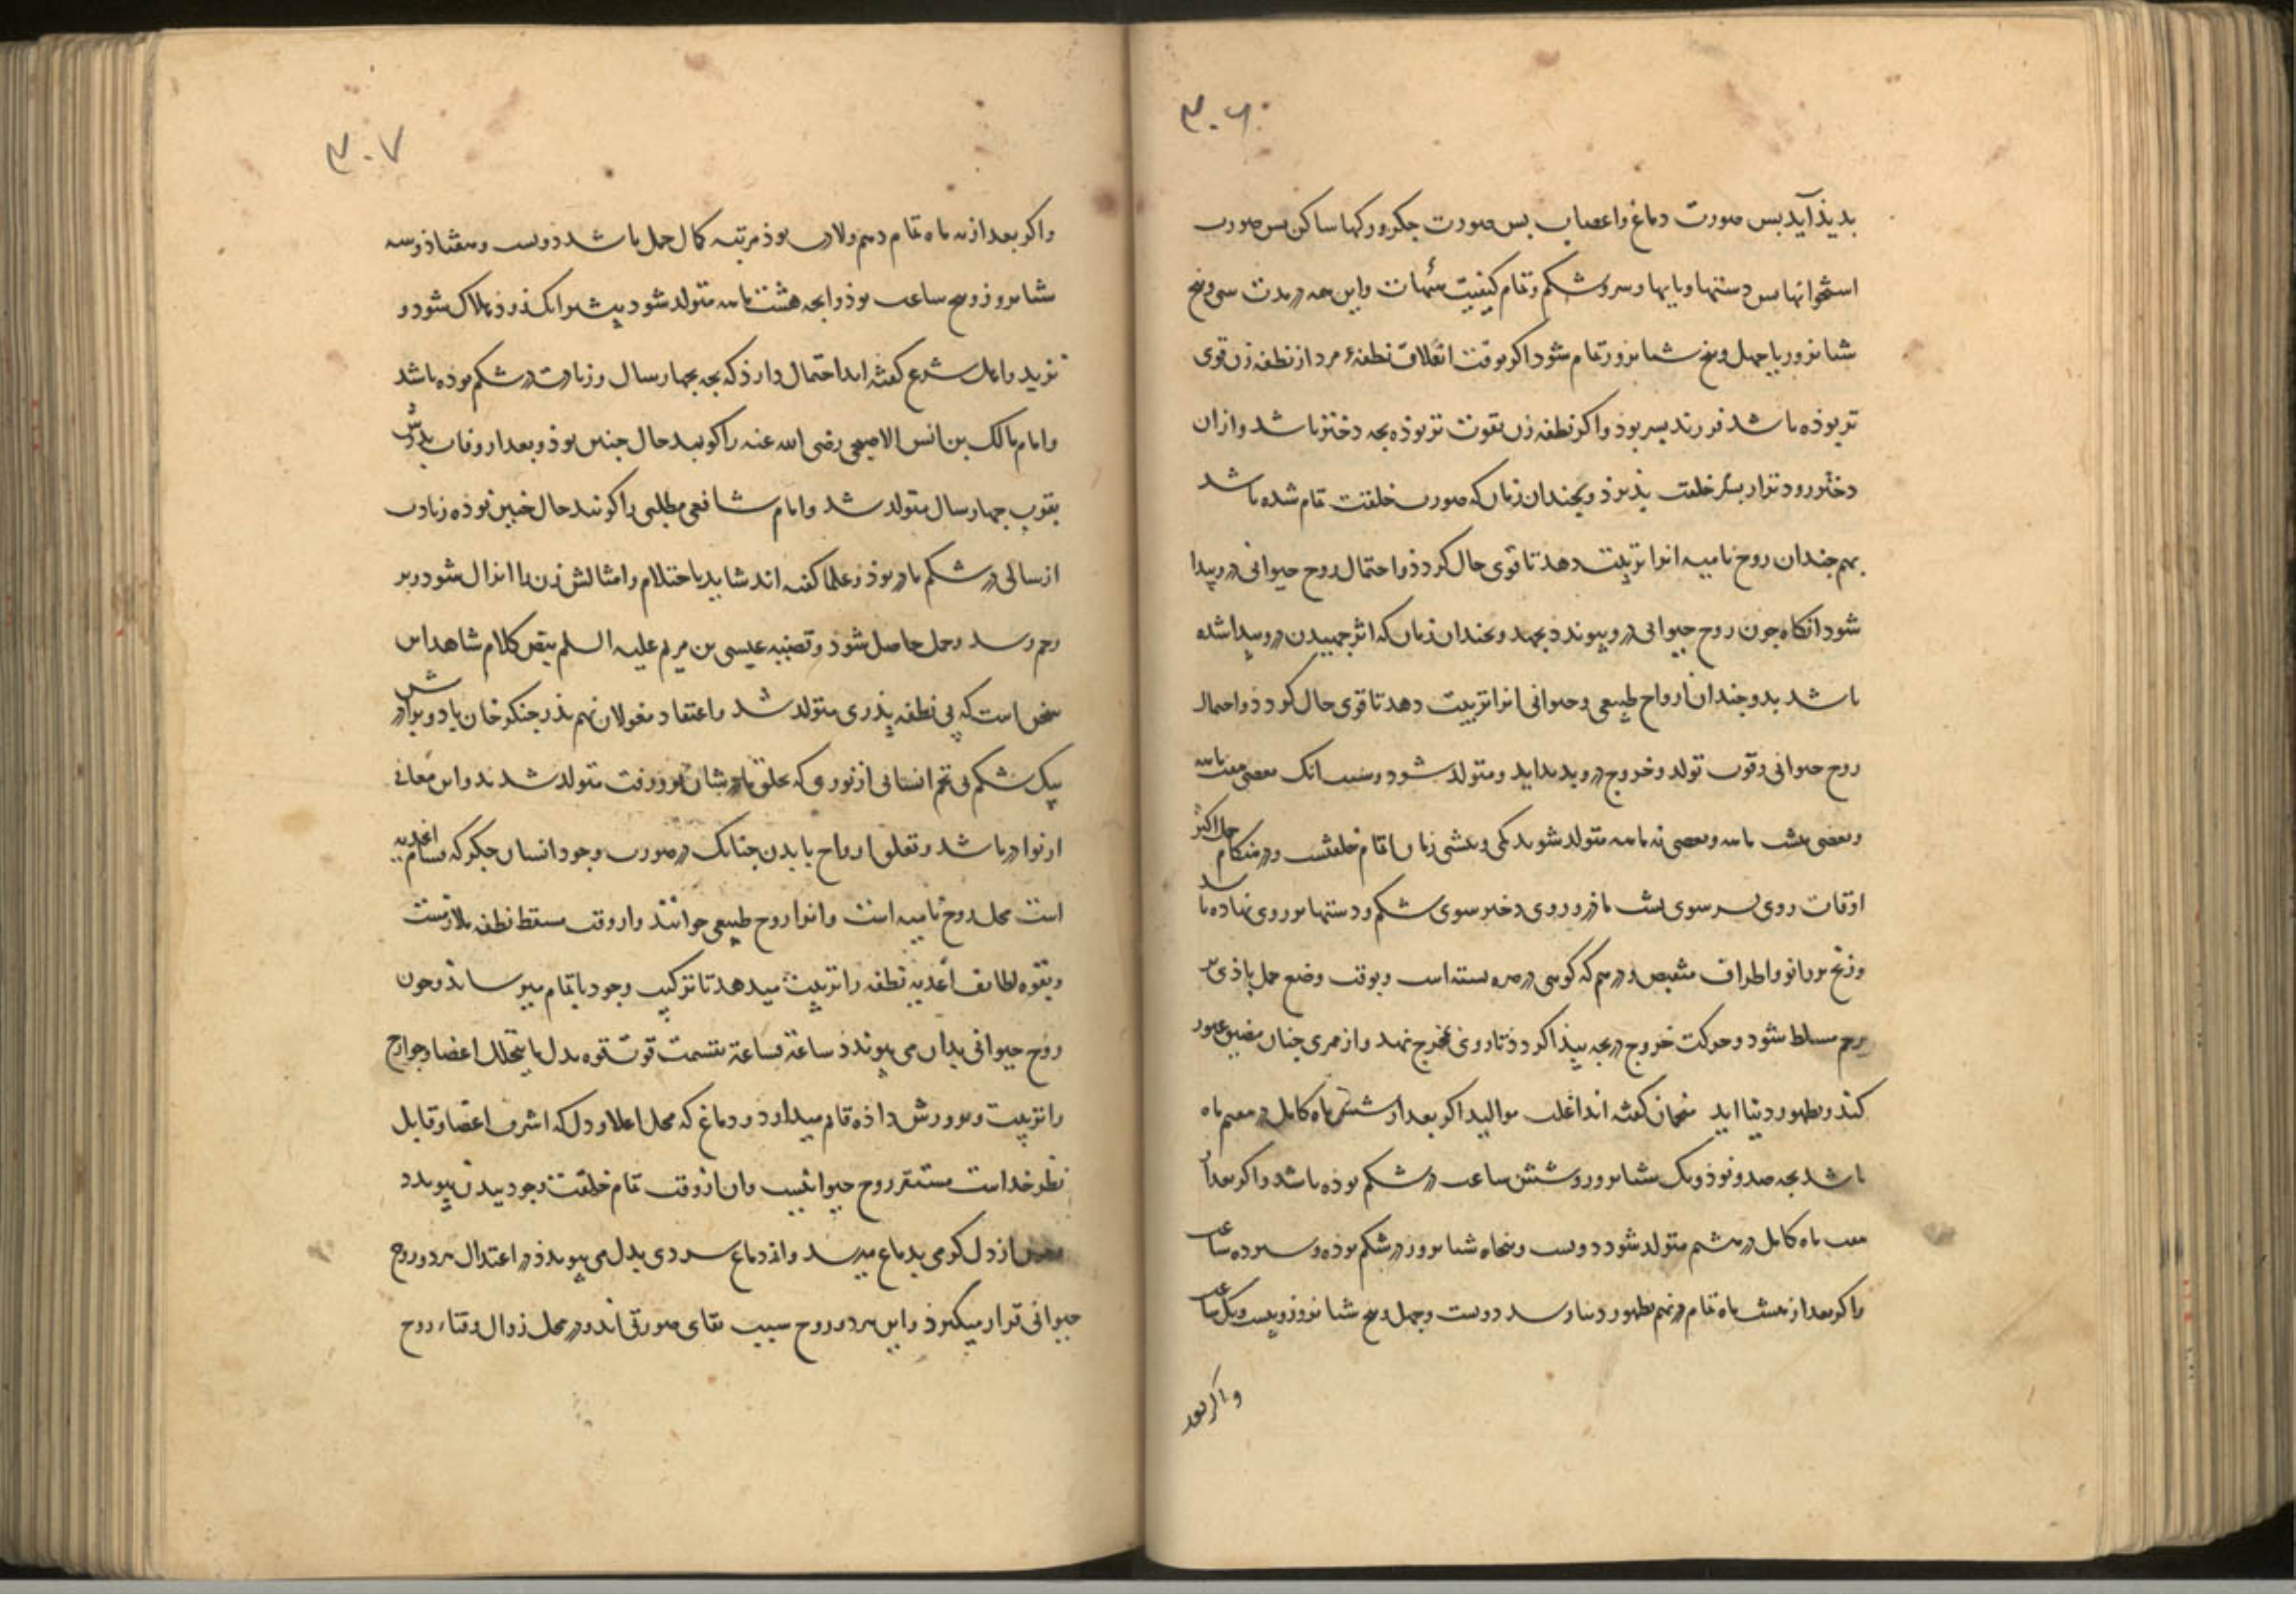 ۳۰۶
بدیذ آید بس صورت دماغ و اعصاب بس صورت جکر و رکها ساکن بس صورت
استخوانها بس دستها و بایها و سر و شکم و تمام کیفیت و این همه در مدت سی و بنج
شبانروز یا جهل و بنج شبانروز تمام شود اکر بوقت نطفهٔ مرد از نطفه زن قوی
تر بوذه باشد فرزند بسر بوذ و اکر نطفه زن بقوت تر بوذه بجه دختر باشد و ازان
دختر زودتر از بسر خلقت بذیرذ و بجندان زمان که صورت خلقت تمام شده باشد
بهم جندان روح نامیه انرا تربیت دهد تا قوی حال کردذ و احتمال روح حیوانی درو بیدا
شود انکاه جون روح حیوانی درو بیوندد بجهد و بجندان زمان که اثر جنبیدن درو بیدا شده
باشد بدو جندان ارواح طبیعی و حیوانی انرا تربیت دهد تا قوی حال کردذ و احتمال
روح حیوانی و قوت تولد و خروج درو بدید اید و متولد شود و سبب انک بعضی هفت ماهه
و بعضی هشت ماهه و بعضی نه ماهه متولد شوند کمی و بیشی زمان اتمام خلقتست و در هنکام حمل اکثر
اوقات روی بسر سوی بشت مادر و روی دختر سوی شکم و دستها بر روی نهاده باشد
و زنخ بر زانو و اطراف در هم که کوئی در صره بسته است و بوقت وضع حمل باذی بر
رحم مسلط شود و حرکت خروج در بجه بیذا کردذ تا روی بمخرج نهد و از ممری جنان مضیق عبور
کند و بظهور دنیا اید منجمان کفته اند اغلب موالید اکر بعد از شش ماه کامل در هفتم ماه
باشد بجه صد و نوذ و یک شبانروز و شش ساعت در شکم بوذه باشد و اکر بعد از
هفت ماه کامل در هشتم متولد شود دویست و بنجاه شبانروز در شکم بوذه و ساعت
و اکر بعد از هشت ماه تمام در نهم بظهور دنیا رسد دویست و جهل و بنج شبانروز و بیست و یک ساعت
و اکر بعد
۳۰۷
و اکر بعد از نه ماه تمام دهم ولادت بوذ مرتبه کمال حمل باشد دویست و هفتاذ و سه
شبانروز و بنج ساعت بوذ و انجه هشت ماهه متولد شود بیشتر انک زوذ هلاک شود و
نزید و اهل شرع کفته اند احتمال دارذ که بجه جهار سال و زیادت در شکم بوذه باشد
و امام مالک بن انس الاصبحی رضی الله عنه را کویند حال جنین بوذ و بعد از وفات بدرش
بقرب جهار سال متولد شد و امام شافعی مطلبی را کویند حال جنین بوذه زیادت
از سالی در شکم مادر بوذ و علما کفته اند شاید باحتلام و امثالش زن را انزال شود و بر
رحم رسد و حمل حاصل شوذ و قضیه عیسی بن مریم علیه السلم بنص کلام شاهد این
سخن است که بی نطفه بذری متولد شد و اعتقاد مغولان نهم بذر جنکز خان با دو برادرش
بیک شکم بی تخم انسانی از نوری که بحلق مادرشان فرو رفت متولد شدند و این معانی
از نوادر باشد و تعلق ارواح بابدن جنانک در صورت وجود انسان جکر که قسام اغذیه
است محل روح نامیه است و انرا روح طبیعی خوانند و از وقت مسقط نطفه ملازمست
و بقوه لطایف اغذیه نطفه را تربیت میدهد تا ترکیب وجود باتمام میرساند و جون
روح حیوانی بدان می بیونددذ ساعة فساعة بقسمت قوت قوه بدل ما یتحلل اعضا و جوارح
را تربیت و برورش داذه قایم میدارد و دماغ که محل اعلا و دل که اشرف اعضا و قابل
نظر خداست مستقر روح حیوانیست و ان از وقت تمام خلقت وجود ببدن بیوندد
از دل کرمی بدماغ میرسد و از دماغ سردی بدل می بیونددذ و اعتدال هر دو روح
حیوانی قرار میکیرذ و این هر دو روح سبب بقای صورتی اند و در محل زوال و فناء روح